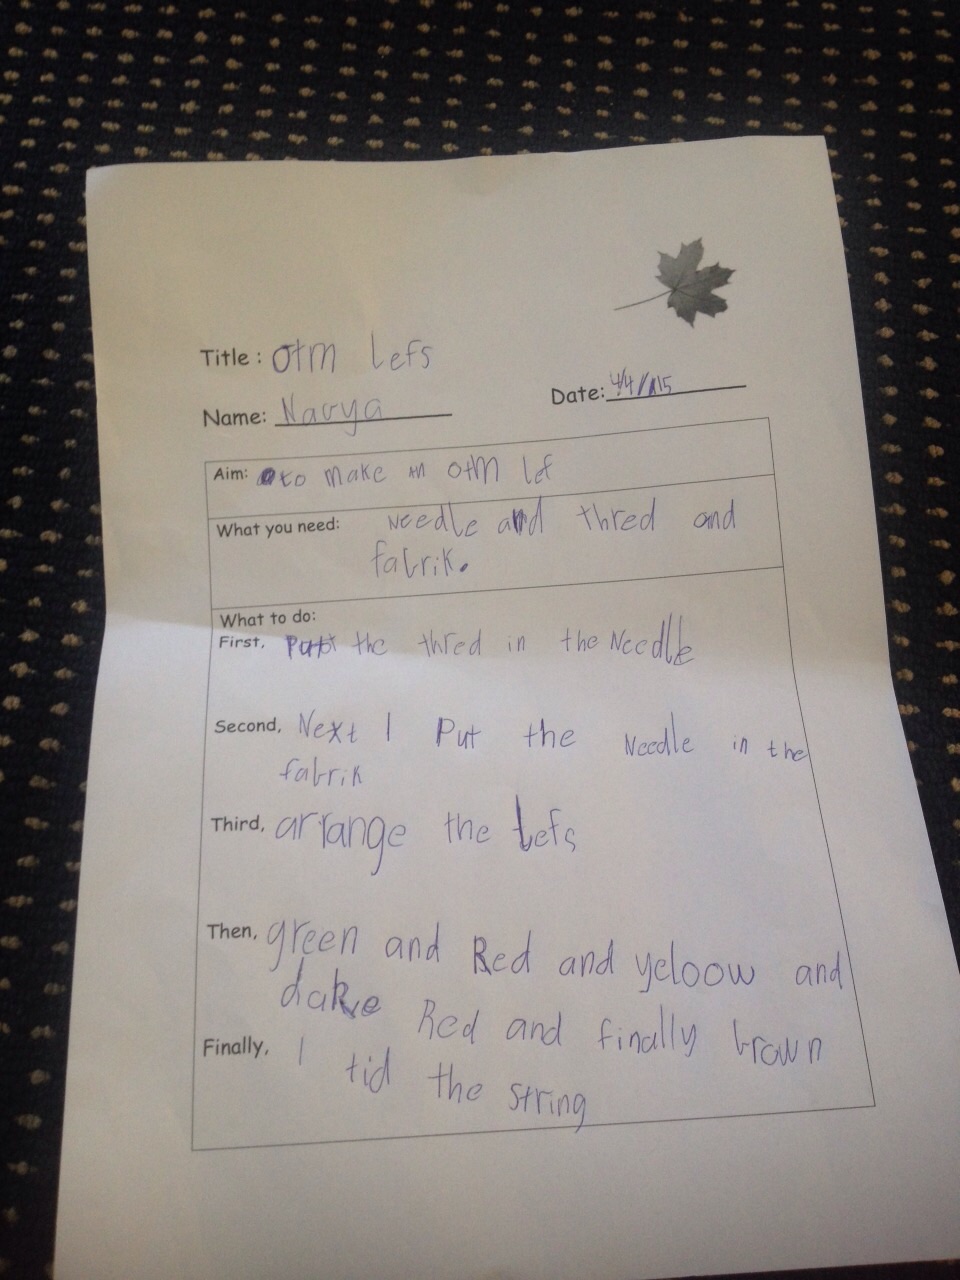 Title : Otm Lefs
Name: Navya Date: 4/4/15
Aim: to make an otm lef
What you need: Needle and thred and
fabrik.
What to do:
First, Put the thred in the Needle
Second, Next I Put the Needle in the
fabrik
Third, arrange the Lefs
Then, green and Red and yeloow and
dake Red and finally brown
Finally, I tid the string